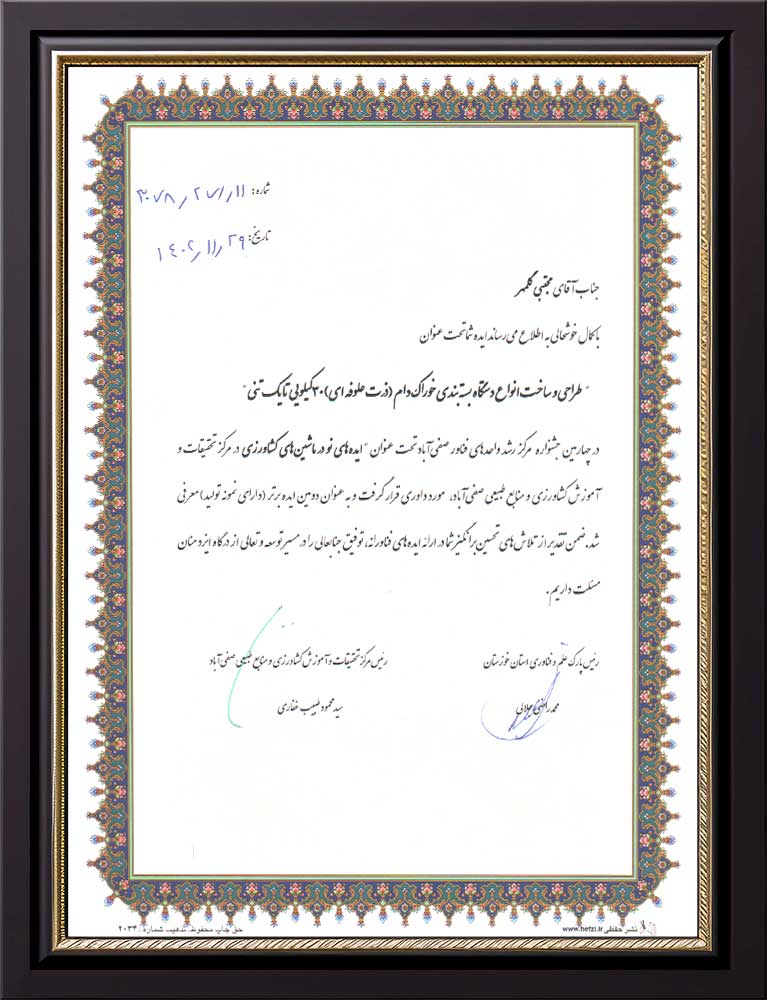 شماره: ۱۱ر۲۷۱ر۳۰۷۸
تاریخ: ۲۹ر۱۱ر۱۴۰۲
جناب آقای مجتبی گلمهر
با کمال خوشحالی به اطلاع می رساند ایده شما تحت عنوان
" طراحی و ساخت انواع دستگاه بسته بندی خوراک دام (ذرت علوفه ای) ۳۰ کیلویی تا یک تنی"
در چهارمین جشنواره مرکز رشد واحدهای فناور صفی آباد تحت عنوان "ایده های نو در ماشین های کشاورزی در مرکز تحقیقات و
آموزش کشاورزی و منابع طبیعی صفی آباد، مورد داوری قرار گرفت و به عنوان دومین ایده برتر (دارای نمونه تولید) معرفی
شد. ضمن تقدیر از تلاش های تحسین برانگیز شما در ارائه ایده های فناورانه، توفیق جنابعالی را در مسیر توسعه و تعالی از درگاه ایزد منان
مسئلت داریم.
رئیس پارک علم و فناوری استان خوزستان
محمدرضی جلالی
رئیس مرکز تحقیقات و آموزش کشاورزی و منابع طبیعی صفی آباد
سید محمود طبیب غفاری
نشر حفظی www.hefzi.ir
حق چاپ محفوظ، تذهیب شماره: ۲۰۳۴